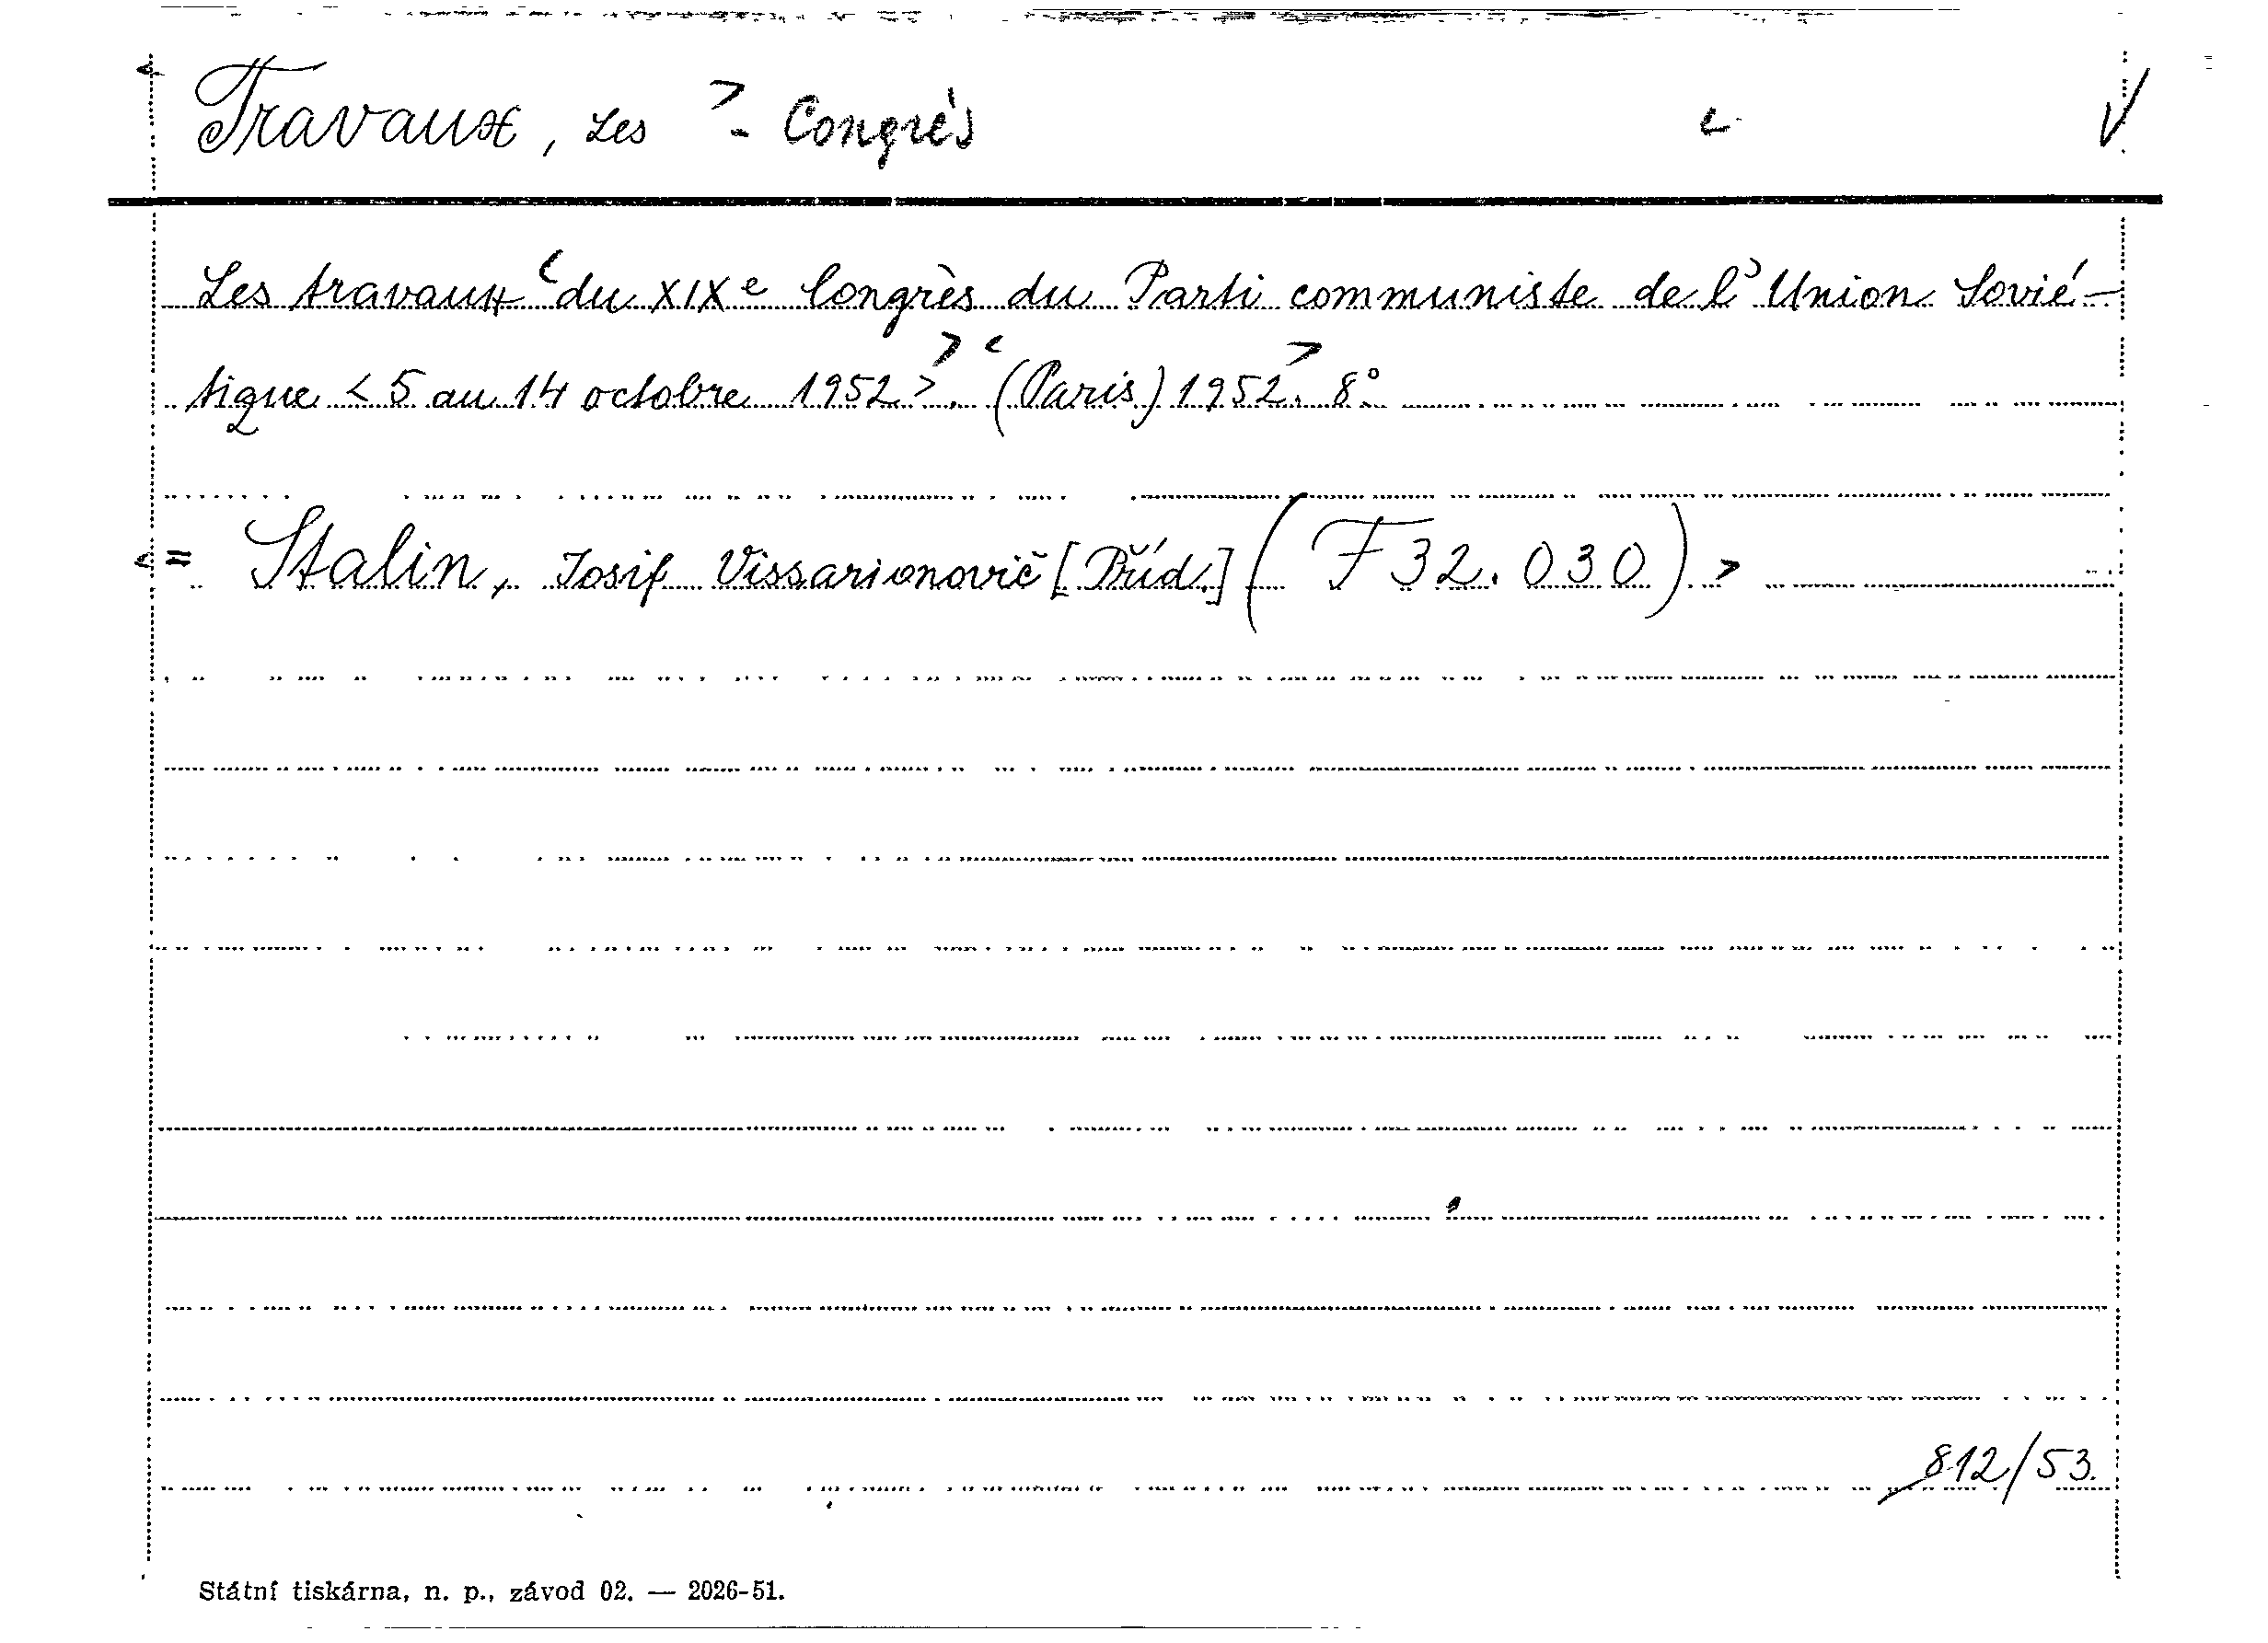 Travaux, Les - Congrès
Les travaux du XIXe Congrès du Parti communiste de l'Union Sovié-
tique < 5 au 14 octobre 1952 >. (Paris) 1952. 8°
= Stalin, Iosif Vissarionovič [Příd.] ( F 32.030 )
812/53.
Státní tiskárna, n. p., závod 02. — 2026-51.